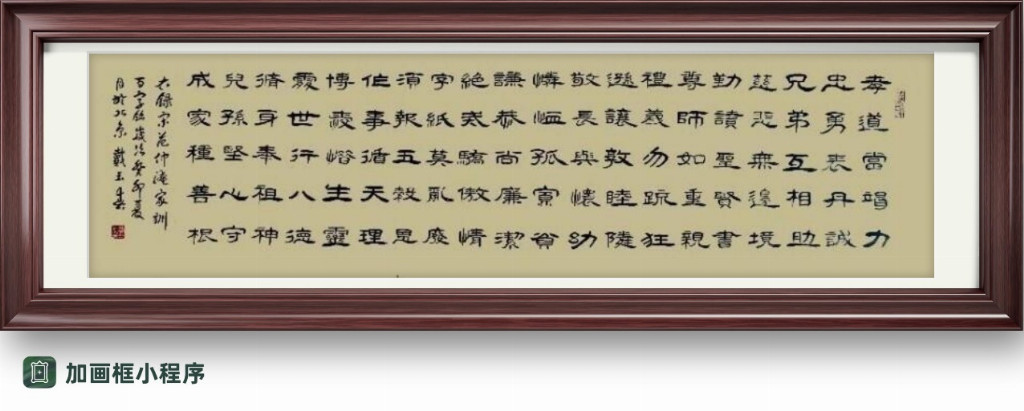 孝道當竭力
忠勇表丹誠
兄弟互相助
慈悲無邊境
勤讀聖賢書
尊師如重親
禮義勿疏狂
遜讓敦睦隣
敬長與懷幼
憐恤孤寡貧
謙恭尚廉潔
絕戒驕傲情
字紙莫亂廢
須報五穀恩
作事循天理
博愛惜生靈
處世行八德
脩身奉祖神
兒孫堅心守
成家種善根
右錄宋范仲淹家訓
百字銘歲次癸卯夏
月於北京 戴玉
加画框小程序